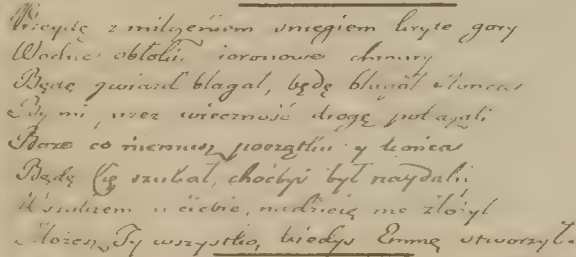 Przeydę z milczeniem śniegiem kryte gory
Wodne obłoki ioronowe chmury
Będę gwiazd błagał, będę błagał słońca
By mi, przez wieczność drogę pokazali
Boże co niemasz początku y końca
Będę Cię szukał, choćbyś był naydaliy
W samem u ciebie, nadzieię me złożył
Możesz Ty wszystko, kiedyś Emmę stworzył.